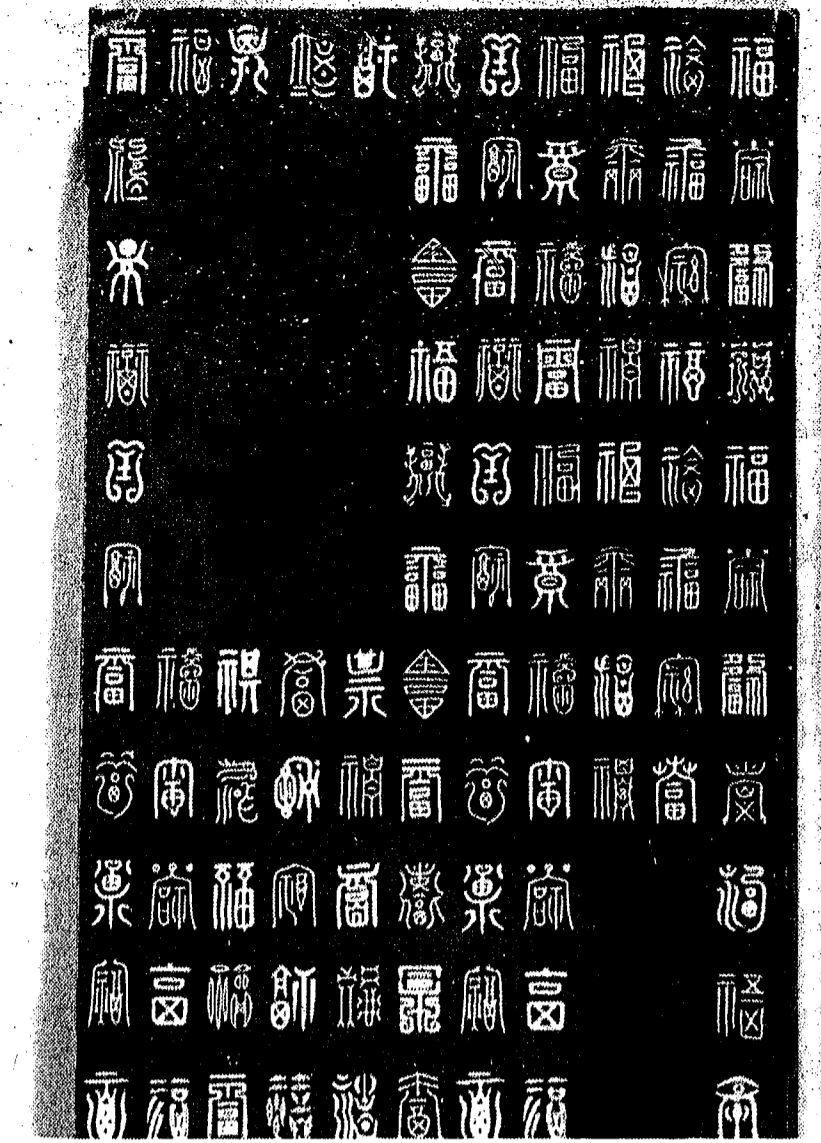 福福福福福福福福福福福
福福福福福福福福
福福福福福福福福
福福福福福福福福福福福
福福福福福福福福福福福
福福福福福福福福福福
福福福福福福
福福福福福福
福福福福福福
福福福福福福
福福福福福福福福福福福